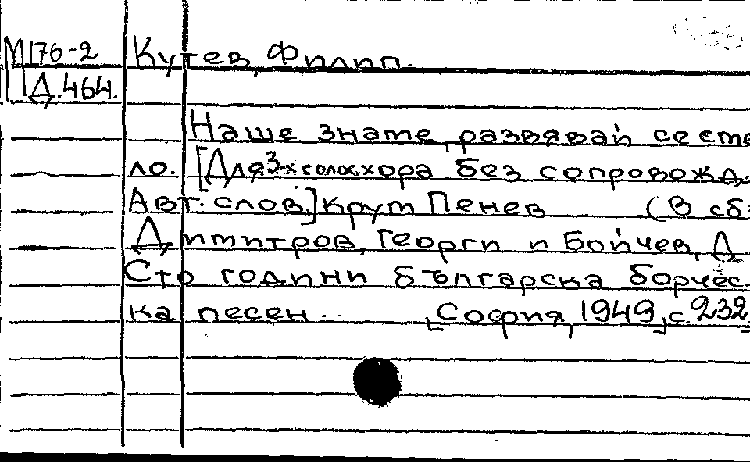 М176-2 Кутев, Филип.
Д.464.
Наше знаме, развявай се сме
ло. [Для 3х голос. хора без сопровожд.
Авт. слов.] Крум Пенев (В сб:
Димитров, Георги и Бойчев, Д
Сто години българска борчес
ка песен. [София, 1949], с. 232